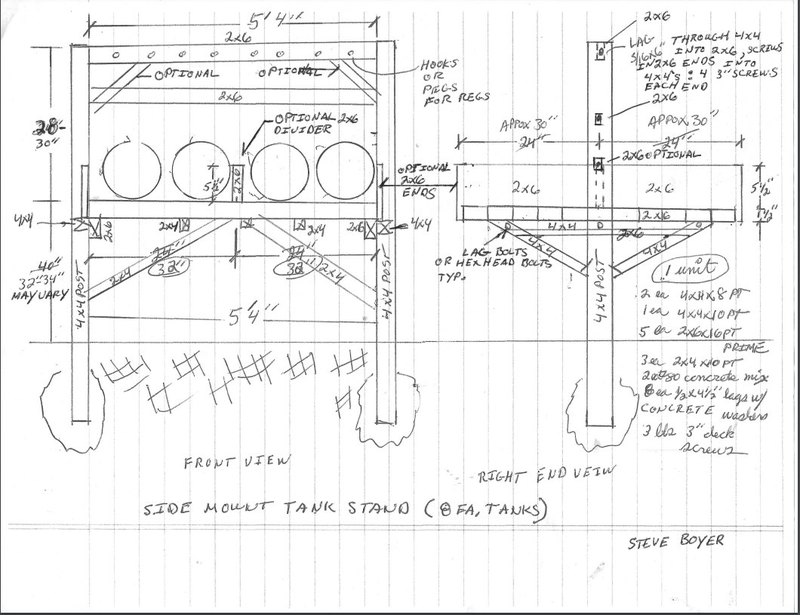 5'4"
2x6
OPTIONAL
OPTIONAL
HOOKS
OR
PEGS
FOR REGS
2x6
28-
30"
OPTIONAL 2x6
DIVIDER
5½"
2x6
OPTIONAL
2x6
ENDS
4x4
2x6
2x4
2x4
2x6
4x4
40"
32" 34"
MAY VARY
24"
32"
24"
32"
2x4
2x4
4x4 POST
4x4 POST
5'4"
FRONT VIEW
2x6
LAG THROUGH 4x4
5/16x6" INTO 2x6, SCREWS
IN 2x6 ENDS INTO
4x4'S : 4 3" SCREWS
EACH END
2x6
APPOX 30"
24"
APPOX 30"
24"
2x6 OPTIONAL
2x6
2x6
5½"
1½"
2x6
4x4
2x6
4x4
4x4
LAG BOLTS
OR HEXHEAD BOLTS
TYP.
4x4 POST
1 unit
2 ea 4x4x8 PT
1 ea 4x4x10 PT
5 ea 2x6x16 PT
PRIME
3 ea 2x4x10 PT
80 concrete mix
8 ea ½x4½" lags w/
CONCRETE washers
3 lbs 3" deck
screws
RIGHT END VEIW
SIDE MOUNT TANK STAND (8 EA, TANKS)
STEVE BOYER